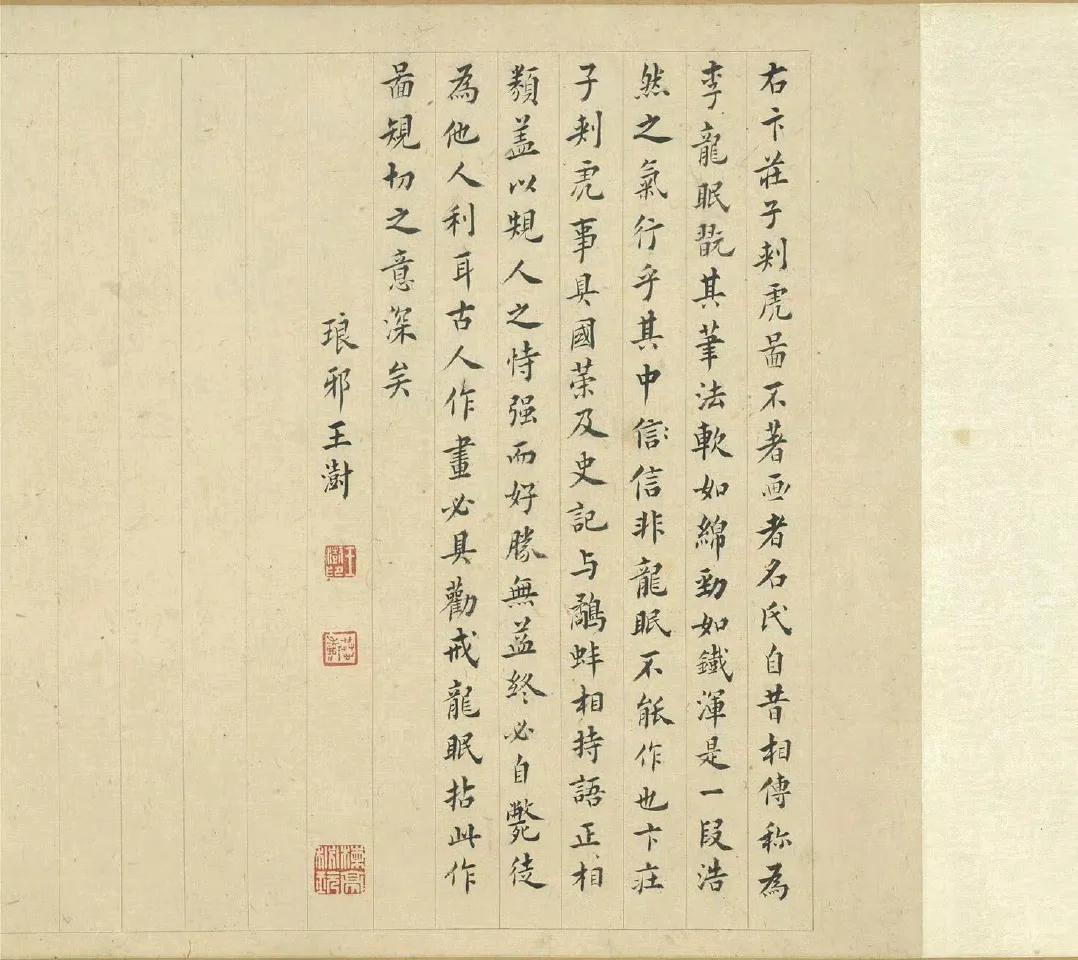 右卞莊子刺虎啚不著画者名氏自昔相傳称為
李龍眠翫其筆法軟如綿勁如鐵渾是一段浩
然之氣行乎其中信信非龍眠不能作也卞莊
子刺虎事具國策及史記与鷸蚌相持語正相
類盖以規人之恃强而好勝無益終必自斃徒
為他人利耳古人作畫必具勸戒龍眠拈此作
啚規切之意深矣
琅邪王澍
王澍印